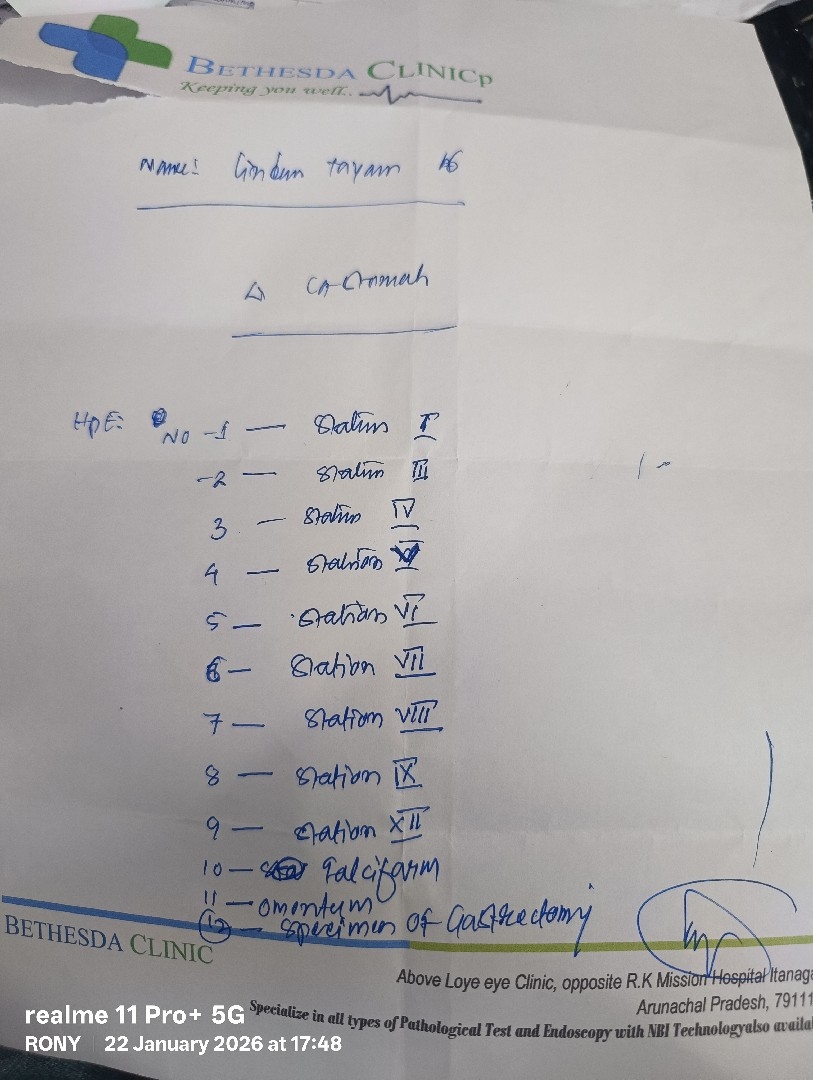 BETHESDA CLINICp
Keeping you well..
Name: tayam
HPE: NO -1 — Station I
-2 — Station III
3 — Station IV
4 — Station V
5 — Station VI
6 — Station VII
7 — Station VIII
8 — Station IX
9 — Station XII
10 — Falcifarm
11 — omentum
12 — specimen of Gastrectomy
BETHESDA CLINIC
Above Loye eye Clinic, opposite R.K Mission Hospital Itanaga
Arunachal Pradesh, 79111
Specialize in all types of Pathological Test and Endoscopy with NBI Technologyalso availa
realme 11 Pro+ 5G
RONY 22 January 2026 at 17:48